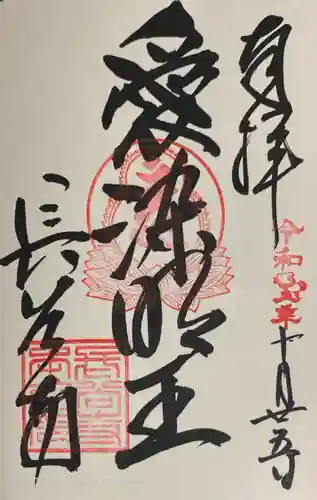 奉拝
令和五年十月廿五日
愛染明王
長谷寺